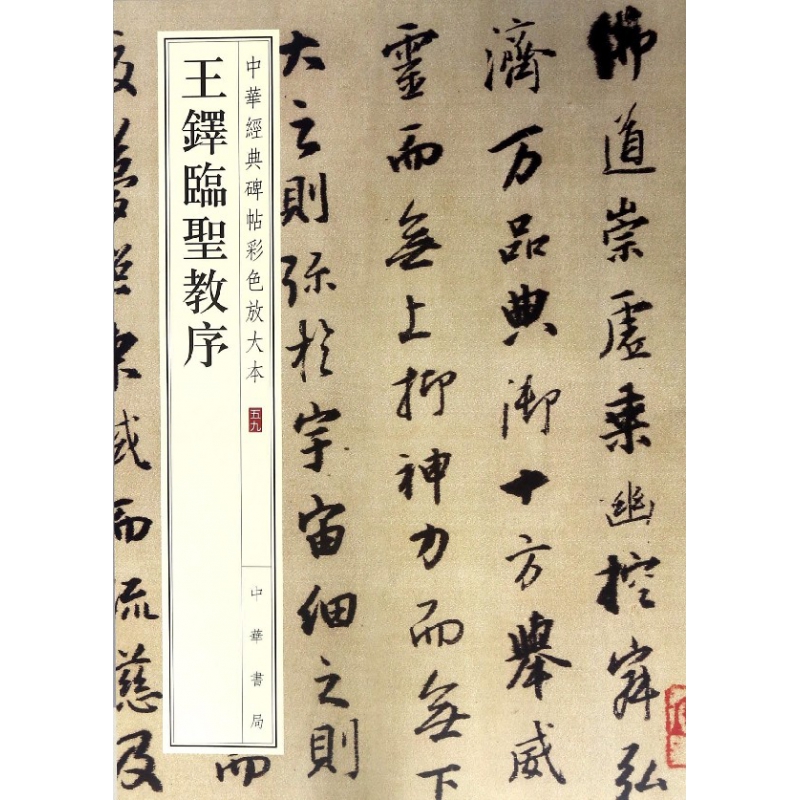 佛道崇虛乘幽控寂弘
濟万品典御十方舉威
靈而無上抑神力而無下
大之則弥於宇宙細之則
中華經典碑帖彩色放大本
五九
中華書局
王鐸臨聖教序
而
夢照東域而流慈及